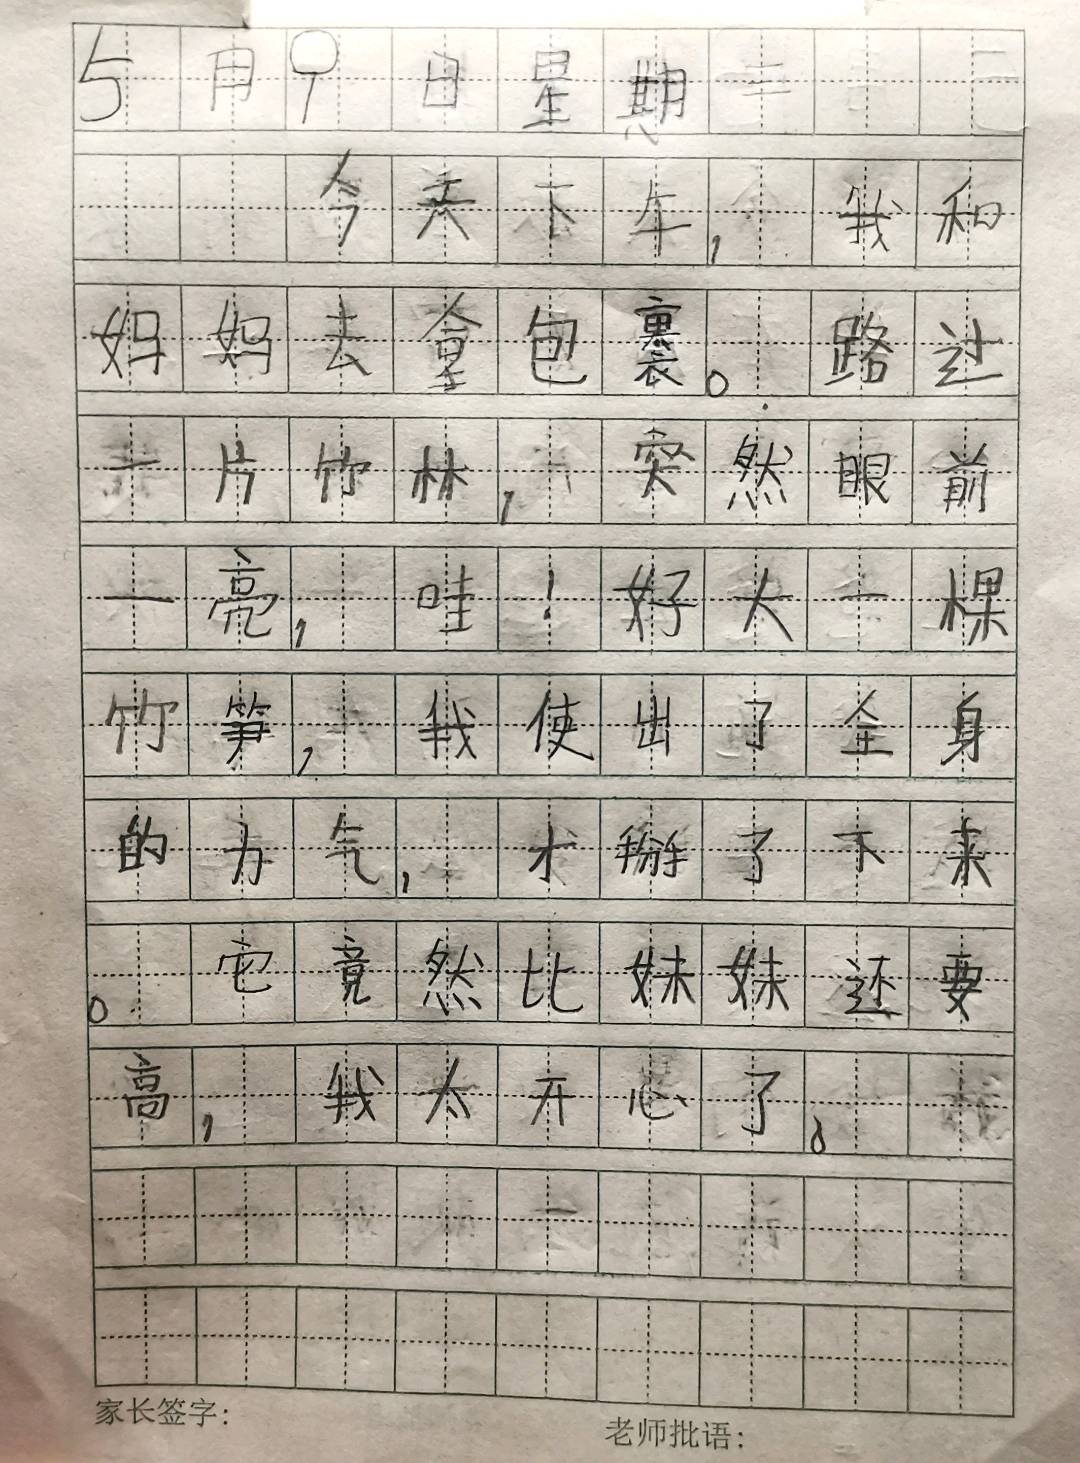 5月9日星期
今天下车，我和
妈妈去拿包裹。路过
一片竹林，突然眼前
一亮，哇！好大一棵
竹笋，我使出了全身
的力气，才掰了下来
。它竟然比妹妹还要
高，我太开心了。
家长签字：
老师批语：